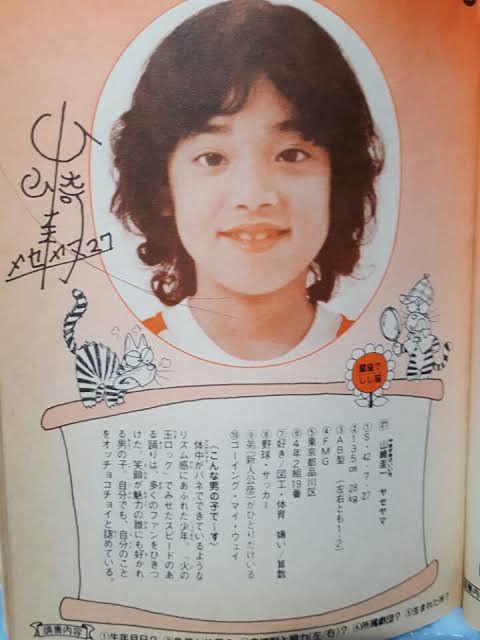 メセメヌ27
星座でしし座
㉗ 山崎圭一 ヤセヤマ
やまざきけいいち
①S・42・7・27
②135cm 28kg
③AB型 (左右とも1.2)
④FMG
⑤東京都品川区
⑥4年2組19番
⑦好き/図工・体育 嫌い/算数
⑧野球・サッカー
⑨弟(新人公彦)がひとりだけいる
⑩ゴーイング・マイ・ウェイ
〈こんな男の子で〜す〉
体中がバネでできているような
リズム感にあふれた少年。「火の
玉ロック」でみせたスピードのあ
る踊りは、多くのファンをひきつ
けた。笑顔が魅力の誰にも好かれ
る男の子。自分でも、自分のこと
をオッチョコチョイと認めている。
調書内容